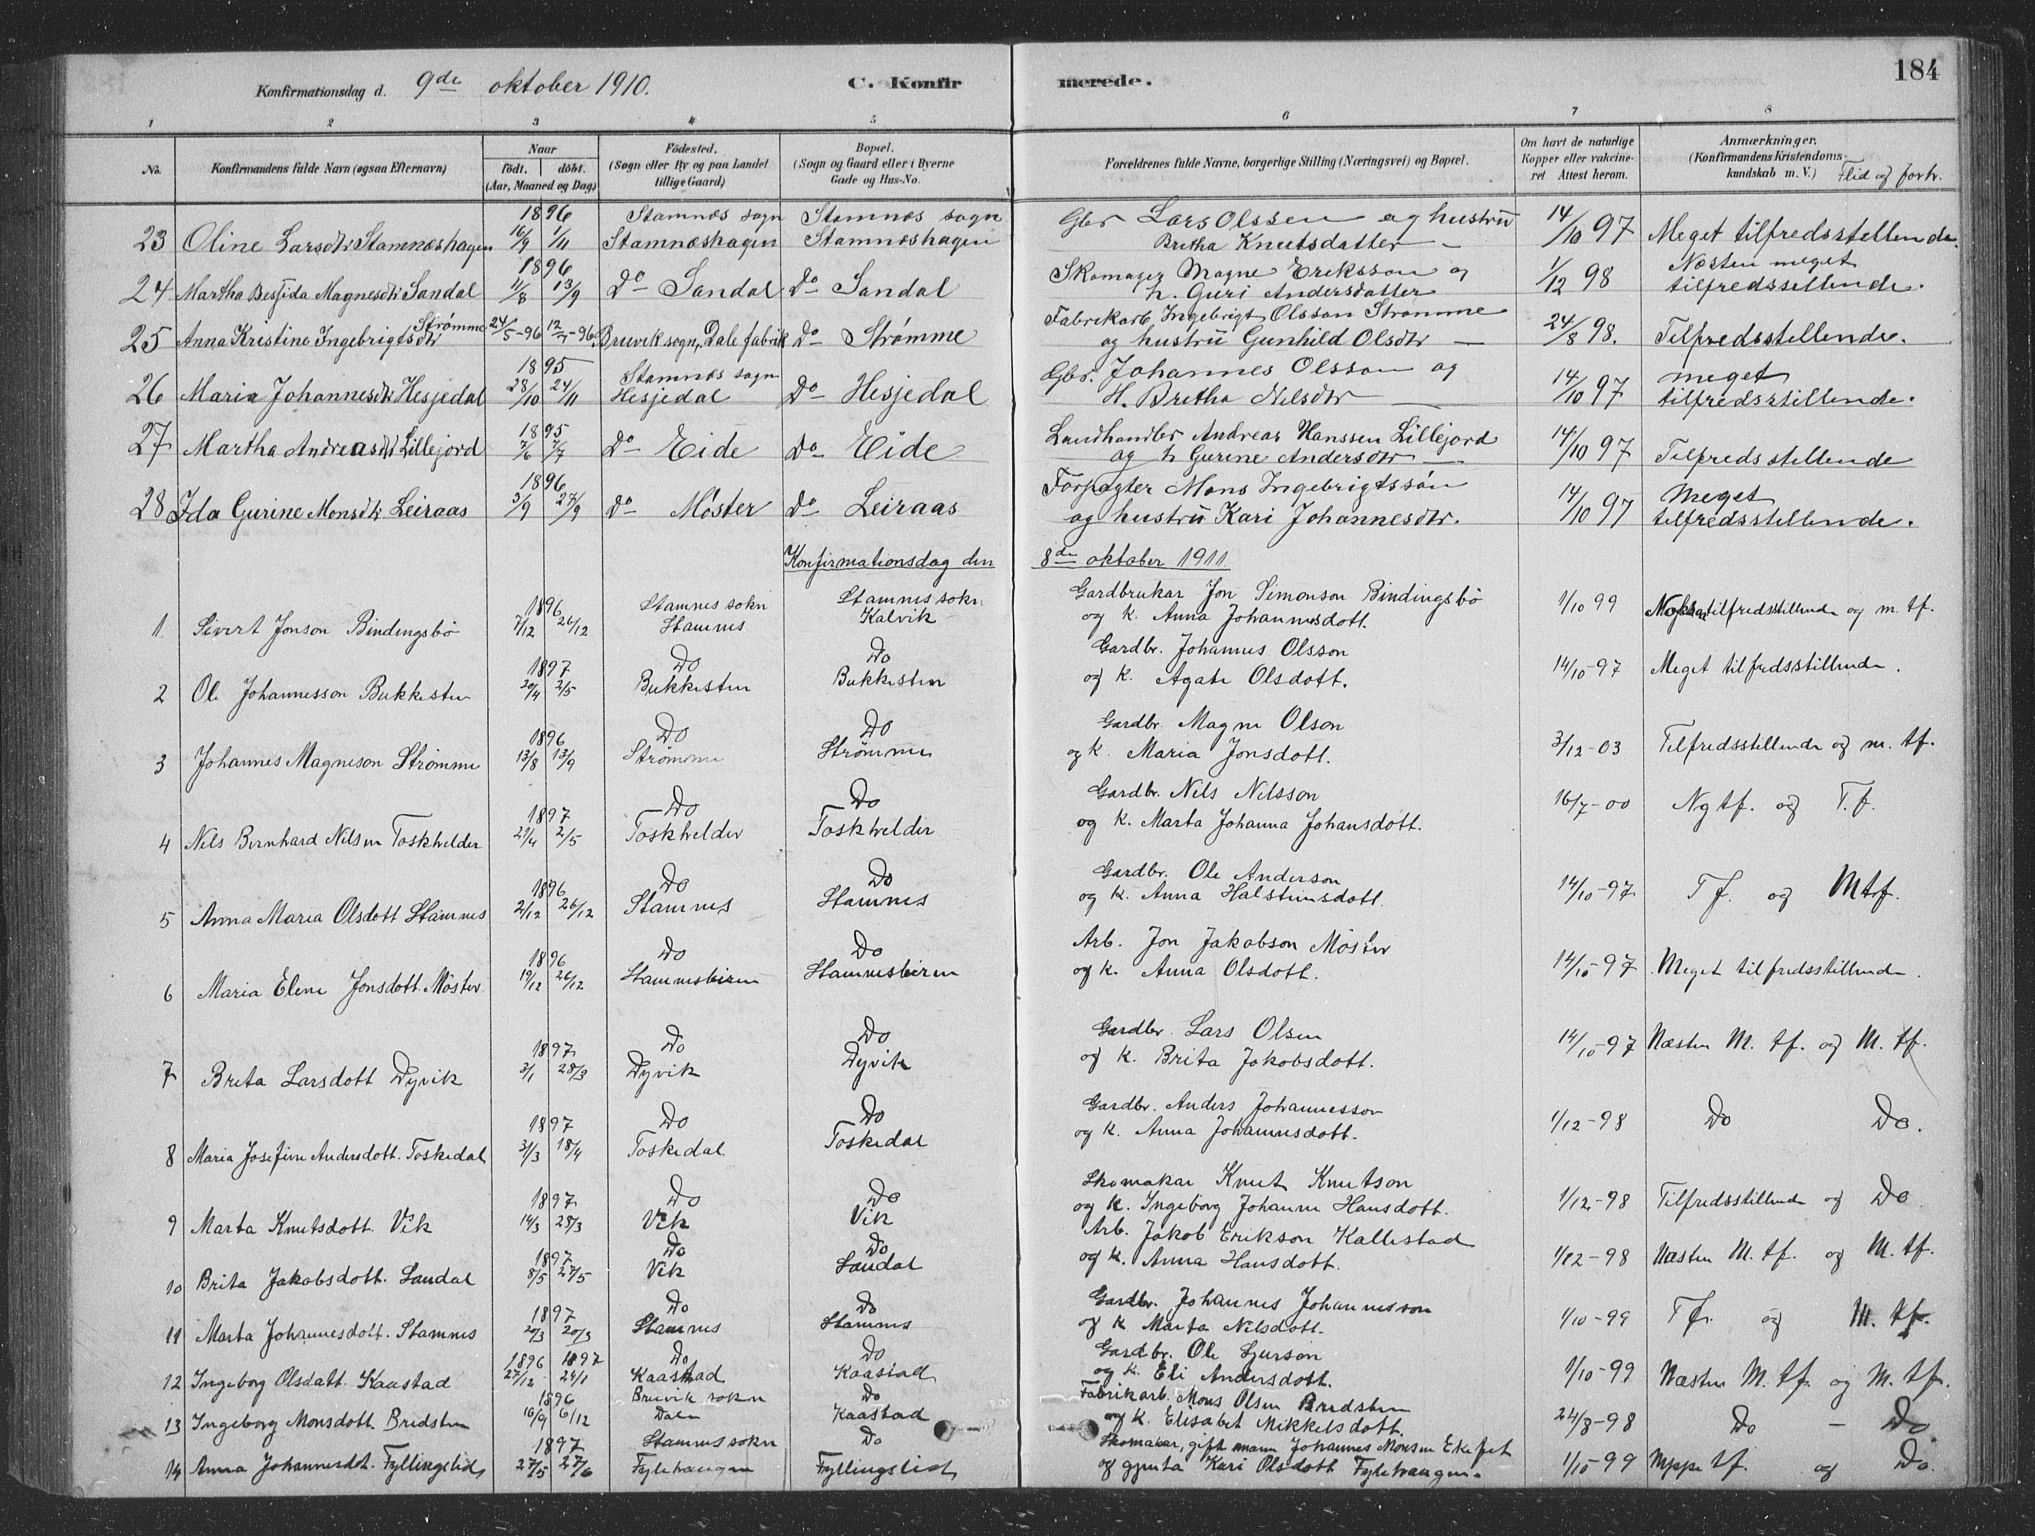 184
Konfirmationsdag d. 9de oktober 1910. C. Konfirmerede.
1 2 3 4 5 6 7 8
No. Konfirmandens fulde Navn (ogsaa Efternavn) Naar født. døbt. (Aar, Maaned og Dag) Fødested. (Sogn eller By og paa Landet tillige Gaard) Bopæl. (Sogn og Gaard eller i Byerne Gade og Hus-No. Forældrenes fulde Navne, borgerlige Stilling (Næringsvei) og Bopæl. Om havt de naturlige Kopper eller vakcineret Attest herom. Anmærkninger. (Konfirmandens Kristendomskundskab m. V.) Flid og forh.
23 Oline Larsdtr Stamneshagen 1896 16/9 1/11 Stamnæs sogn Stamnæshagen Stamnæs sogn Stamnæshagen Gbr Lars Olssen og hustru Bretha Knutsdatter — 14/10 97 Meget tilfredsstellende.
24 Martha Bessida Magnesdtr Sandal 1896 11/8 13/9 Do Sandal Do Sandal Skomager Magne Eriksson og h. Guri Andersdatter 1/12 98 Næsten meget tilfredsstillende.
25 Anna Kristine Ingebrigtsdtr Strømme 24/5-96 12/7-96 Bruvik sogn, Dale fabrik Do Strømme Fabrikarb. Ingebrigt Olsson Strømme og hustru Gunhild Olsdtr — 24/8 98. Tilfredsstillende.
26 Maria Johannesdtr Hesjedal 1895 28/10 24/11 Stamnæs sogn Hesjedal Do Hesjedal Gbr. Johannes Olsson og H. Bretha Nilsdtr — 14/10 97 meget tilfredsstillende.
27 Martha Andreasdtr Lillejord 1895 7/6 7/7 Do Eide Do Eide Landhandler Andreas Hanssen Lillejord og h Gurine Andersdtr — 14/10 97 Tilfredsstillende
28 Ida Gurine Monsdtr Leiraas 1896 3/9 27/9 Do Møster Do Leiraas Forpagter Mons Ingebrigtssøn og hustru Kari Johannesdtr. 14/10 97 Meget tilfredsstillende.
Konfirmationsdag den 8de oktober 1911
1 Sivert Jonson Bindingsbö 1896 7/12 26/12 Stamnes sokn Stamnes Stamnes sokn Kalvik Gardbrukar Jon Simonson Bindingsbö og k. Anna Johannesdott. 1/10 99 tilfredsstillende og m. tf.
2 Ole Johannesson Bukkesten 1897 20/4 2/5 Do Bukkesten Do Bukkesten Gardbr. Johannes Olsson og k. Agate Olsdott. 14/10-97 Meget tilfredsstillende.
3 Johannes Magneson Strømme 1896 13/8 13/9 Do Strømme Do Strømme Gardbr. Magne Olson og k. Maria Jonsdott. 3/12-03 Tilfredsstillende og m. tf.
4 Nils Bernhard Nilsen Toskhelder 1897 21/4 2/5 Do Toskhelder Do Toskhelder Gardbr. Nils Nilsson og k. Marta Johanna Johansdott. 16/7-00 Ng tf. og T.f.
5 Anna Maria Olsdott Stamnes 1896 2/12 26/12 Do Stamnes Do Stamnes Gardbr. Ole Anderson og k. Anna Halsteinsdott. 14/10-97 Tf. og Mtf.
6 Maria Elene Jonsdott. Møster 1896 19/12 26/12 Do Stamnesbiren Do Stamnesbiren Arb. Jon Jakobson Møster og k. Anna Olsdott. 14/10-97 Meget tilfredsstillende.
7 Brita Larsdott Dyvik 1897 2/1 28/3 Do Dyvik Do Dyvik Gardbr. Lars Olsen og k. Brita Jakobsdott. 14/10-97 Næsten M. tf. og M. tf.
8 Maria Josefine Andersdott. Toskedal 1897 3/3 18/4 Do Toskedal Do Toskedal Gardbr. Anders Johannesson og k. Anna Johannesdott. 1/12-98 Do Do.
9 Marta Knutsdott. Vik 1897 14/3 28/3 Do Vik Do Vik Skomakar Knut Knutson og k. Ingeborg Johanne Hansdott. 1/12-98 Tilfredsstillende og Do
10 Brita Jakobsdott. Sandal 1897 8/5 27/5 Do Vik Do Sandal Arb. Jakob Erikson Kallestad og k. Anna Hansdott. 1/12-98 Næsten M. tf. og M. tf.
11 Marta Johannesdott. Stamnes 1897 20/3 20/3 Do Stamnes Do Stamnes Gardbr. Johannes Johannesson og k Marta Nilsdott. 1/10-99 Tf. og M. tf.
12 Ingeborg Olsdatt. Kaastad 1896 27/12 1897 24/1 Do Kaastad Do Kaastad Gardbr. Ole Sjurson og k. Eli Andersdott. 1/10-99 Næsten M. tf. og M. tf.
13 Ingeborg Monsdott. Bredsten 1896 16/9 6/12 Bruvik sokn Dale Do Kaastad Fabrikarb. Mons Olsen Bredsten og k. Elisabet Mikkelsdott. 24/8-98 Do — Do
14 Anna Johannesdot. Fyllingslid 1897 27/5 27/6 Stamnes sokn Fylehaugen Do Fyllingslid Skomakar, gift mann Johannes Monsen Ekefet og gjenta Kari Olsdott Fylehaugen. 1/10-99 tf. og Do.